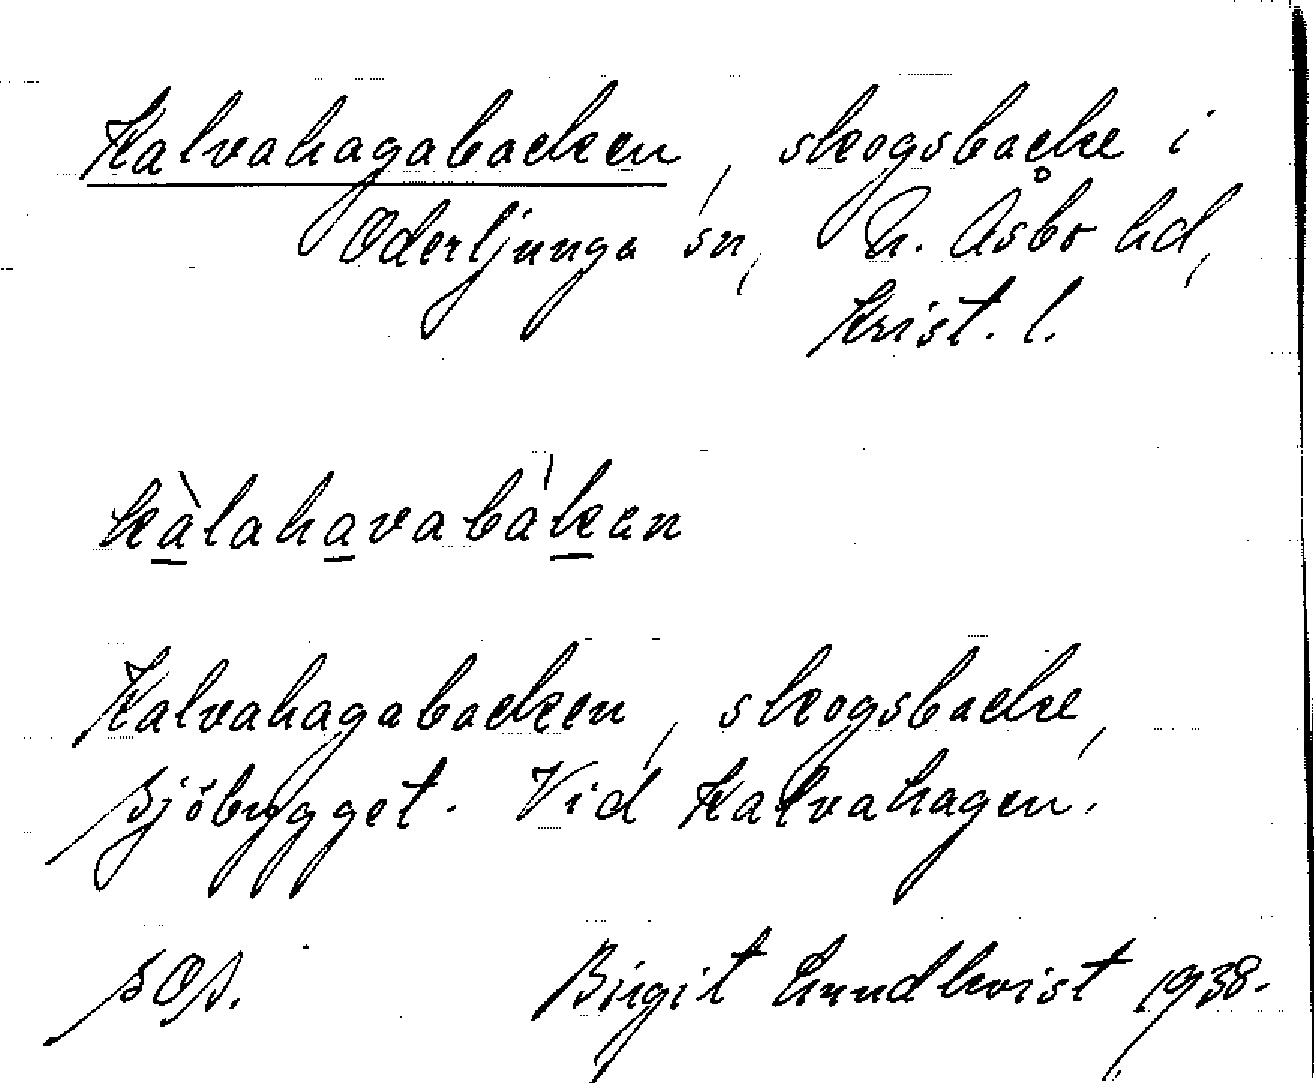 Kalvahagabacken, skogsbacke i
Oderljunga sn, N. Åsbo hd,
Krist. l.
kàlahavabàken
Kalvahagabacken, skogsbacke,
Sjöbygget. Vid Kalvahagen.
SOS. Birgit Lundkvist 1938.